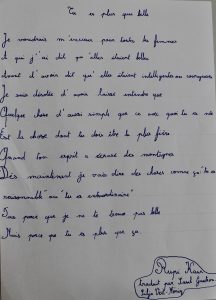 Tu es plus que belle
Je voudrais m'excuser pour toutes les femmes
A qui j'ai dit qu'elles étaient belles
Avant d'avoir dit qu'elles étaient intelligentes ou courageuses
Je suis désolée d'avoir laissé entendre que
Quelque chose d'aussi simple que ce avec quoi tu es née
Est la chose dont tu dois être la plus fière
Quand ton esprit a écrasé des montagnes
Dès maintenant je vais dire des choses comme "tu es
raisonnable" ou "tu es extraordinaire"
Pas parce que je ne te trouve pas belle
Mais parce que tu es plus que ça.
Rupi Kaur
Traduit par